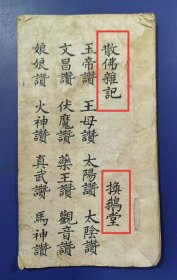 散佛雜記 換鵝堂
玉帝讚 王母讚 太陽讚 太陰讚
文昌讚 伏魔讚 藥王讚 觀音讚
娘娘讚 火神讚 真武讚 馬神讚